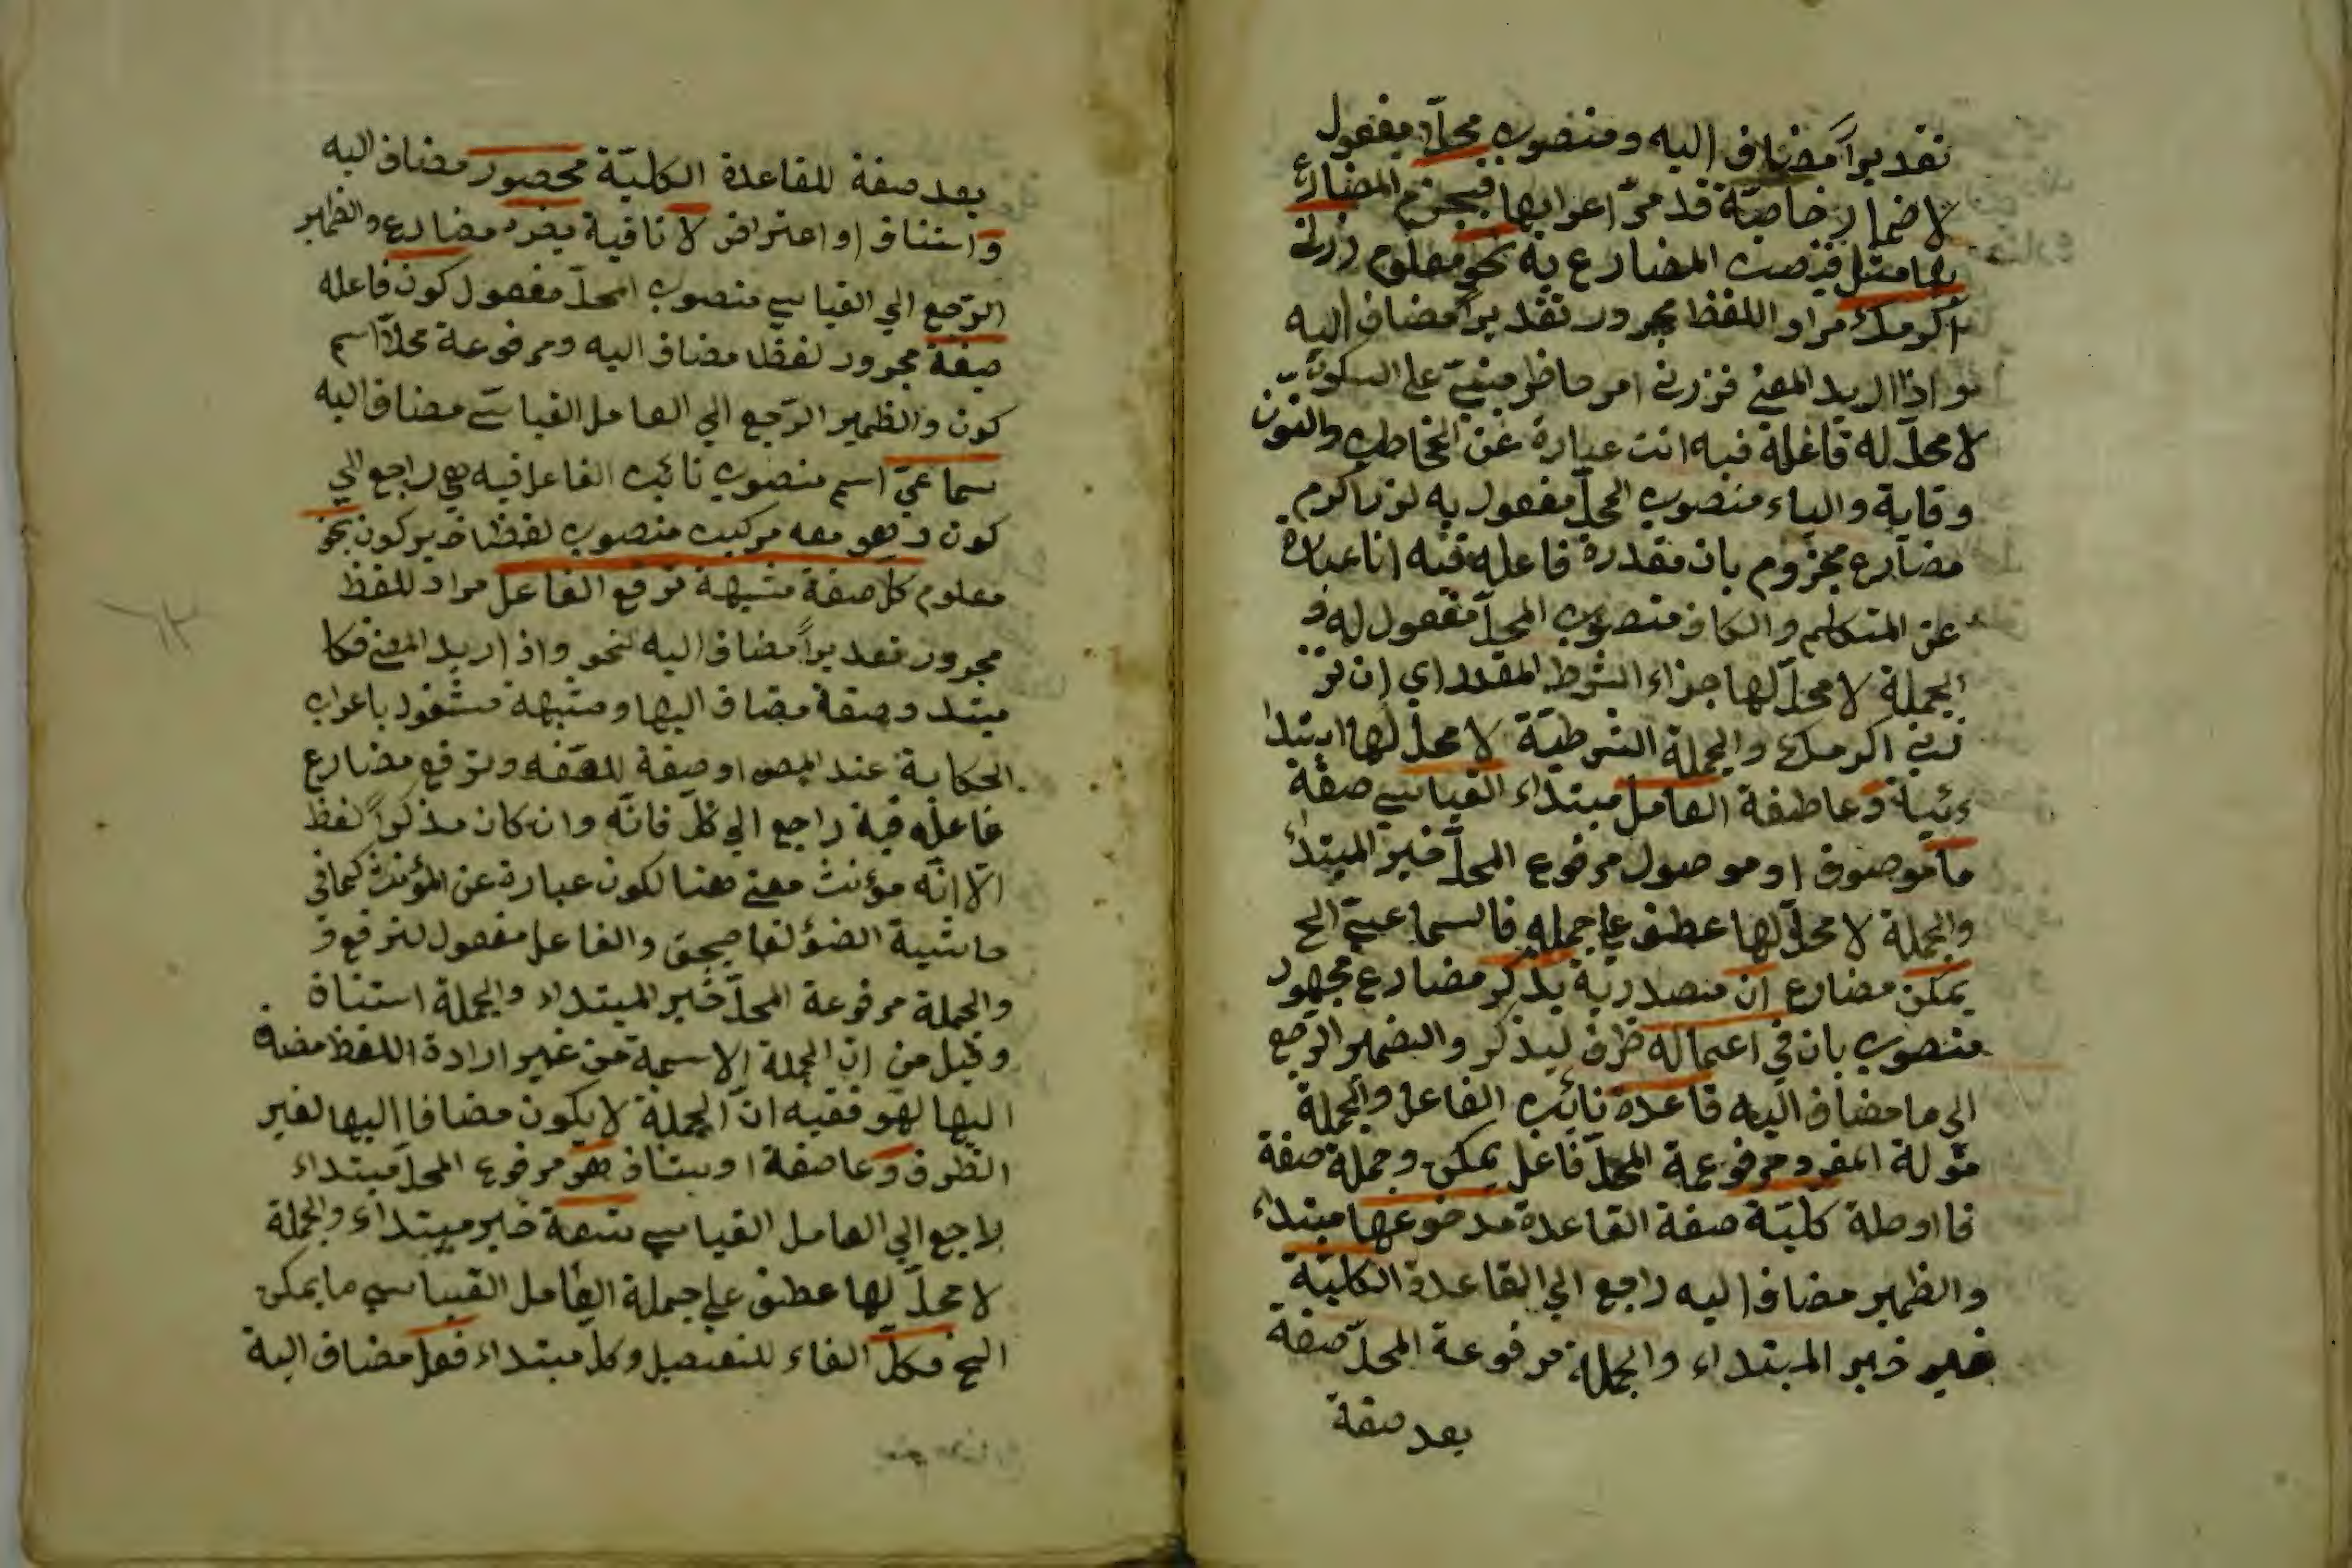 تقديراً مضاف اليه ومنصوب محلاً مفعول
لاضمار خاصّة قد مرّ اعرابها فيجزم المضارع
بها مثل فنصب المضارع به نحو معلوم زرني
اكرمك مراد اللفظ مجرور تقديراً مضاف اليه
نحو اذا اريد المعني فزرني امر حاظر مبنيّ علي السكون
لا محلّ له فاعله فيه انت عبارة عن المخاطب والنون
وقاية والياء منصوب المحلّ مفعول به لزر اكرم
مضارع مجزوم بان مقدرة فاعله فيه انا عبارة
عن المتكلم والكاف منصوب المحلّ مفعول له و
الجملة لا محلّ لها جزاء الشرط المقدر اي ان تز
رني اكرمك والجملة الشرطيّة لا محلّ لها ابتدا
ئية وعاطفة العامل مبتداء القياسي صفة
ما موصوف او موصول مرفوع المحلّ خبر المبتداء
والجملة لا محلّ لها عطف علي جملة فالسماعيّ الخ
يمكن مضارع ان مصدريّة يذكر مضارع مجهول
منصوب بان في اعماله ظرف ليذكر والضمير الرّجع
الي ما مضاف اليه قاعدة نائب الفاعل والجملة
مؤلة المفرد مرفوعة المحلّ فاعل يمكن وجملة صفة
ما اوصلة كليّة صفة القاعدة موضوعها مبتداء
والظمير مضاف اليه راجع الي القاعدة الكليّة
غير خبر المبتداء والجملة مرفوعة المحلّ صفة
بعد صفة
بعد صفة للقاعدة الكليّة محصور مضاف اليه
واستناف او اعتراض لا نافية يضرّ مضارع والظمير
الرّجع الي القياسي منصوب المحلّ مفعول كون فاعله
صيغة مجرور لفظا مضاف اليه ومرفوعة محلاّ اسم
كون والظمير الرّجع الي العامل القياسيّ مضاف اليه
سماعيّ اسم منصوب نائب الفاعل فيه هي راجع الي
كون وهو معه مركب منصوب لفظا خبر كون نحو
معلوم كلّ صفة مشبهة ترفع الفاعل مراد اللفظ
مجرور تقديراً مضاف اليه لنحو واذا اريد المعني فكل
مبتداء وصفة مضاف اليها ومشبهة مشغول باعراب
الحكاية عند المص او صفة للصفة وترفع مضارع
فاعله فيه راجع الي كلّ فانّه وان كان مذكراً لفظ
الّا انّه مؤنث معني هنا لكون عبارة عن المؤنث كما في
حاشية الضؤ لفاصجق والفاعل مفعول لترفع و
والجملة مرفوعة المحلّ خبر المبتداء والجملة استناف
وقيل من ان الجملة الاسمية من غير ارادة اللفظ مضاف
اليها لهو ففيه انّ الجملة لا يكون مضافا اليها لغير
الظرف وعاصفة او يستناف هو مرفوع المحلّ مبتداء
راجع الي العامل القياسي تسعة خبر مبتداء والجملة
لا محلّ لها عطف علي جملة العامل القياسي ما يمكن
الخ فكلّ الفاء للتفصيل وكل مبتداء فعل مضاف اليه